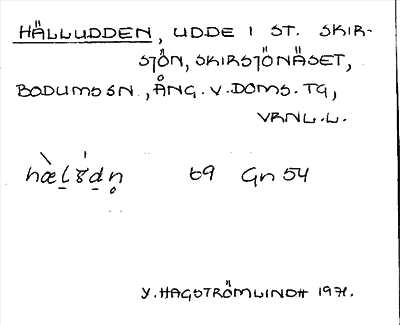 HÄLLUDDEN, UDDE I ST. SKIR-
SJÖN, SKIRSJÖNÄSET,
BODUMS SN., ÅNG. V. DOMS. TG,
VRNL.L.
69 Gn 54
Y. HAGSTRÖMLINDH 1971.